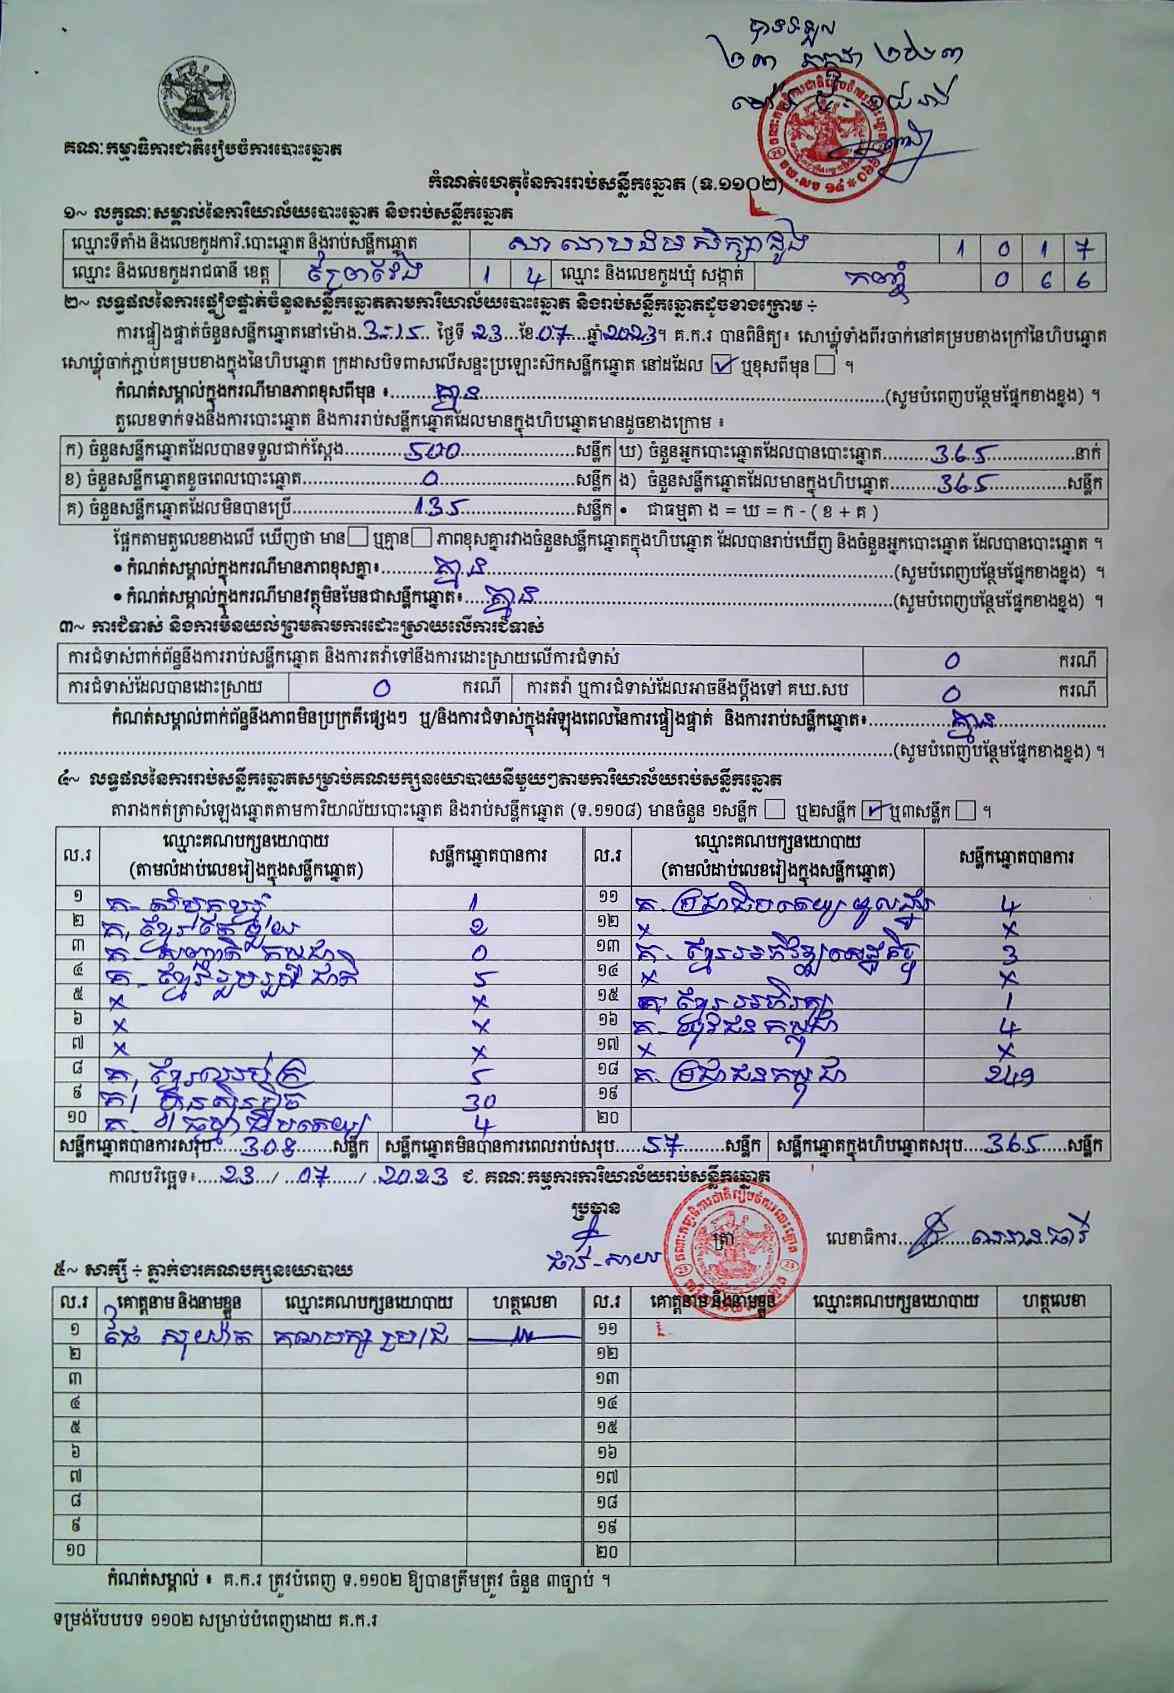 បានទទួល
២៣ កក្កដា ២០២៣
គណៈកម្មាធិការជាតិរៀបចំការបោះឆ្នោត
កំណត់ហេតុនៃការរាប់សន្លឹកឆ្នោត (ទ.១១០២)
១~ លក្ខណៈសម្គាល់នៃការិយាល័យបោះឆ្នោត និងរាប់សន្លឹកឆ្នោត
ឈ្មោះទីតាំង និងលេខកូដការិ.បោះឆ្នោត និងរាប់សន្លឹកឆ្នោត សាលាបឋមសិក្សាដូង 1 0 1 7
ឈ្មោះ និងលេខកូដរាជធានី ខេត្ត ព្រៃវែង 1 4 ឈ្មោះ និងលេខកូដឃុំ សង្កាត់ 0 6 6
២~ លទ្ធផលនៃការផ្ទៀងផ្ទាត់ចំនួនសន្លឹកឆ្នោតតាមការិយាល័យបោះឆ្នោត និងរាប់សន្លឹកឆ្នោតដូចខាងក្រោម ÷
ការផ្ទៀងផ្ទាត់ចំនួនសន្លឹកឆ្នោតនៅម៉ោង 3-15 ថ្ងៃទី 23 ខែ 07 ឆ្នាំ 2023។ គ.ក.រ បានពិនិត្យ៖ សោឃ្លុំទាំងពីរចាក់នៅគម្របខាងក្រៅនៃហិបឆ្នោត
សោឃ្លុំចាក់ភ្ជាប់គម្របខាងក្នុងនៃហិបឆ្នោត ក្រដាសបិទពាសលើសន្ទះប្រឡោះស៊កសន្លឹកឆ្នោត នៅដដែល ☑ ឬខុសពីមុន ☐ ។
កំណត់សម្គាល់ក្នុងករណីមានភាពខុសពីមុន ៖ គ្មាន (សូមបំពេញបន្ថែមផ្នែកខាងខ្នង) ។
តួលេខទាក់ទងនឹងការបោះឆ្នោត និងការរាប់សន្លឹកឆ្នោតដែលមានក្នុងហិបឆ្នោតមានដូចខាងក្រោម ៖
ក) ចំនួនសន្លឹកឆ្នោតដែលបានទទួលជាក់ស្តែង 500 សន្លឹក ឃ) ចំនួនអ្នកបោះឆ្នោតដែលបានបោះឆ្នោត 365 នាក់
ខ) ចំនួនសន្លឹកឆ្នោតខូចពេលបោះឆ្នោត 0 សន្លឹក ង) ចំនួនសន្លឹកឆ្នោតដែលមានក្នុងហិបឆ្នោត 365 សន្លឹក
គ) ចំនួនសន្លឹកឆ្នោតដែលមិនបានប្រើ 135 សន្លឹក • ជាធម្មតា ង = ឃ = ក - ( ខ + គ )
ផ្អែកតាមតួលេខខាងលើ ឃើញថា មាន ☐ ឬគ្មាន ☐ ភាពខុសគ្នារវាងចំនួនសន្លឹកឆ្នោតក្នុងហិបឆ្នោត ដែលបានរាប់ឃើញ និងចំនួនអ្នកបោះឆ្នោត ដែលបានបោះឆ្នោត ។
• កំណត់សម្គាល់ក្នុងករណីមានភាពខុសគ្នា៖ គ្មាន (សូមបំពេញបន្ថែមផ្នែកខាងខ្នង) ។
• កំណត់សម្គាល់ក្នុងករណីមានវត្ថុមិនមែនជាសន្លឹកឆ្នោត៖ គ្មាន (សូមបំពេញបន្ថែមផ្នែកខាងខ្នង) ។
៣~ ការជំទាស់ និងការមិនយល់ព្រមតាមការដោះស្រាយលើការជំទាស់
ការជំទាស់ពាក់ព័ន្ធនឹងការរាប់សន្លឹកឆ្នោត និងការតវ៉ាទៅនឹងការដោះស្រាយលើការជំទាស់ 0 ករណី
ការជំទាស់ដែលបានដោះស្រាយ 0 ករណី ការតវ៉ា ឬការជំទាស់ដែលអាចនឹងប្តឹងទៅ គឃ.សប 0 ករណី
កំណត់សម្គាល់ពាក់ព័ន្ធនឹងភាពមិនប្រក្រតីផ្សេងៗ ឬ/និងការជំទាស់ក្នុងអំឡុងពេលនៃការផ្ទៀងផ្ទាត់ និងការរាប់សន្លឹកឆ្នោត៖ គ្មាន
(សូមបំពេញបន្ថែមផ្នែកខាងខ្នង) ។
៤~ លទ្ធផលនៃការរាប់សន្លឹកឆ្នោតសម្រាប់គណបក្សនយោបាយនីមួយៗតាមការិយាល័យរាប់សន្លឹកឆ្នោត
តារាងកត់ត្រាសំឡេងឆ្នោតតាមការិយាល័យបោះឆ្នោត និងរាប់សន្លឹកឆ្នោត (ទ.១១០៨) មានចំនួន ១សន្លឹក ☐ ឬ២សន្លឹក ☑ ឬ៣សន្លឹក ☐ ។
ល.រ ឈ្មោះគណបក្សនយោបាយ សន្លឹកឆ្នោតបានការ ល.រ ឈ្មោះគណបក្សនយោបាយ សន្លឹកឆ្នោតបានការ
(តាមលំដាប់លេខរៀងក្នុងសន្លឹកឆ្នោត) (តាមលំដាប់លេខរៀងក្នុងសន្លឹកឆ្នោត)
១ 1 ១១ គ. ប្រជាធិបតេយ្យមូលដ្ឋាន 4
២ គ. ខ្មែរឈប់ក្រ 2 ១២ x x
៣ គ. សញ្ជាតិកម្ពុជា 0 ១៣ គ. ខ្មែរអភិវឌ្ឍន៍សេដ្ឋកិច្ច 3
៤ គ. ខ្មែររួបរួមជាតិ 5 ១៤ x x
៥ x x ១៥ 1
៦ x x ១៦ គ. យុវជនកម្ពុជា 4
៧ x x ១៧ x x
៨ 5 ១៨ គ. ប្រជាជនកម្ពុជា 249
៩ គ. ហ្វ៊ុនស៊ិនប៉ិច 30 ១៩
១០ គ. ធម្មាធិបតេយ្យ 4 ២០
សន្លឹកឆ្នោតបានការសរុប 308 សន្លឹក សន្លឹកឆ្នោតមិនបានការពេលរាប់សរុប 57 សន្លឹក សន្លឹកឆ្នោតក្នុងហិបឆ្នោតសរុប 365 សន្លឹក
កាលបរិច្ឆេទ៖ 23 / 07 / 2023 ជ. គណៈកម្មការការិយាល័យរាប់សន្លឹកឆ្នោត
ប្រធាន
ត្រា លេខាធិការ
៥~ សាក្សី ÷ ភ្នាក់ងារគណបក្សនយោបាយ
ល.រ គោត្តនាម និងនាមខ្លួន ឈ្មោះគណបក្សនយោបាយ ហត្ថលេខា ល.រ គោត្តនាម និងនាមខ្លួន ឈ្មោះគណបក្សនយោបាយ ហត្ថលេខា
១ គណបក្ស ១១
២ ១២
៣ ១៣
៤ ១៤
៥ ១៥
៦ ១៦
៧ ១៧
៨ ១៨
៩ ១៩
១០ ២០
កំណត់សម្គាល់ ៖ គ.ក.រ ត្រូវបំពេញ ទ.១១០២ ឱ្យបានត្រឹមត្រូវ ចំនួន ៣ច្បាប់ ។
ទម្រង់បែបបទ ១១០២ សម្រាប់បំពេញដោយ គ.ក.រ